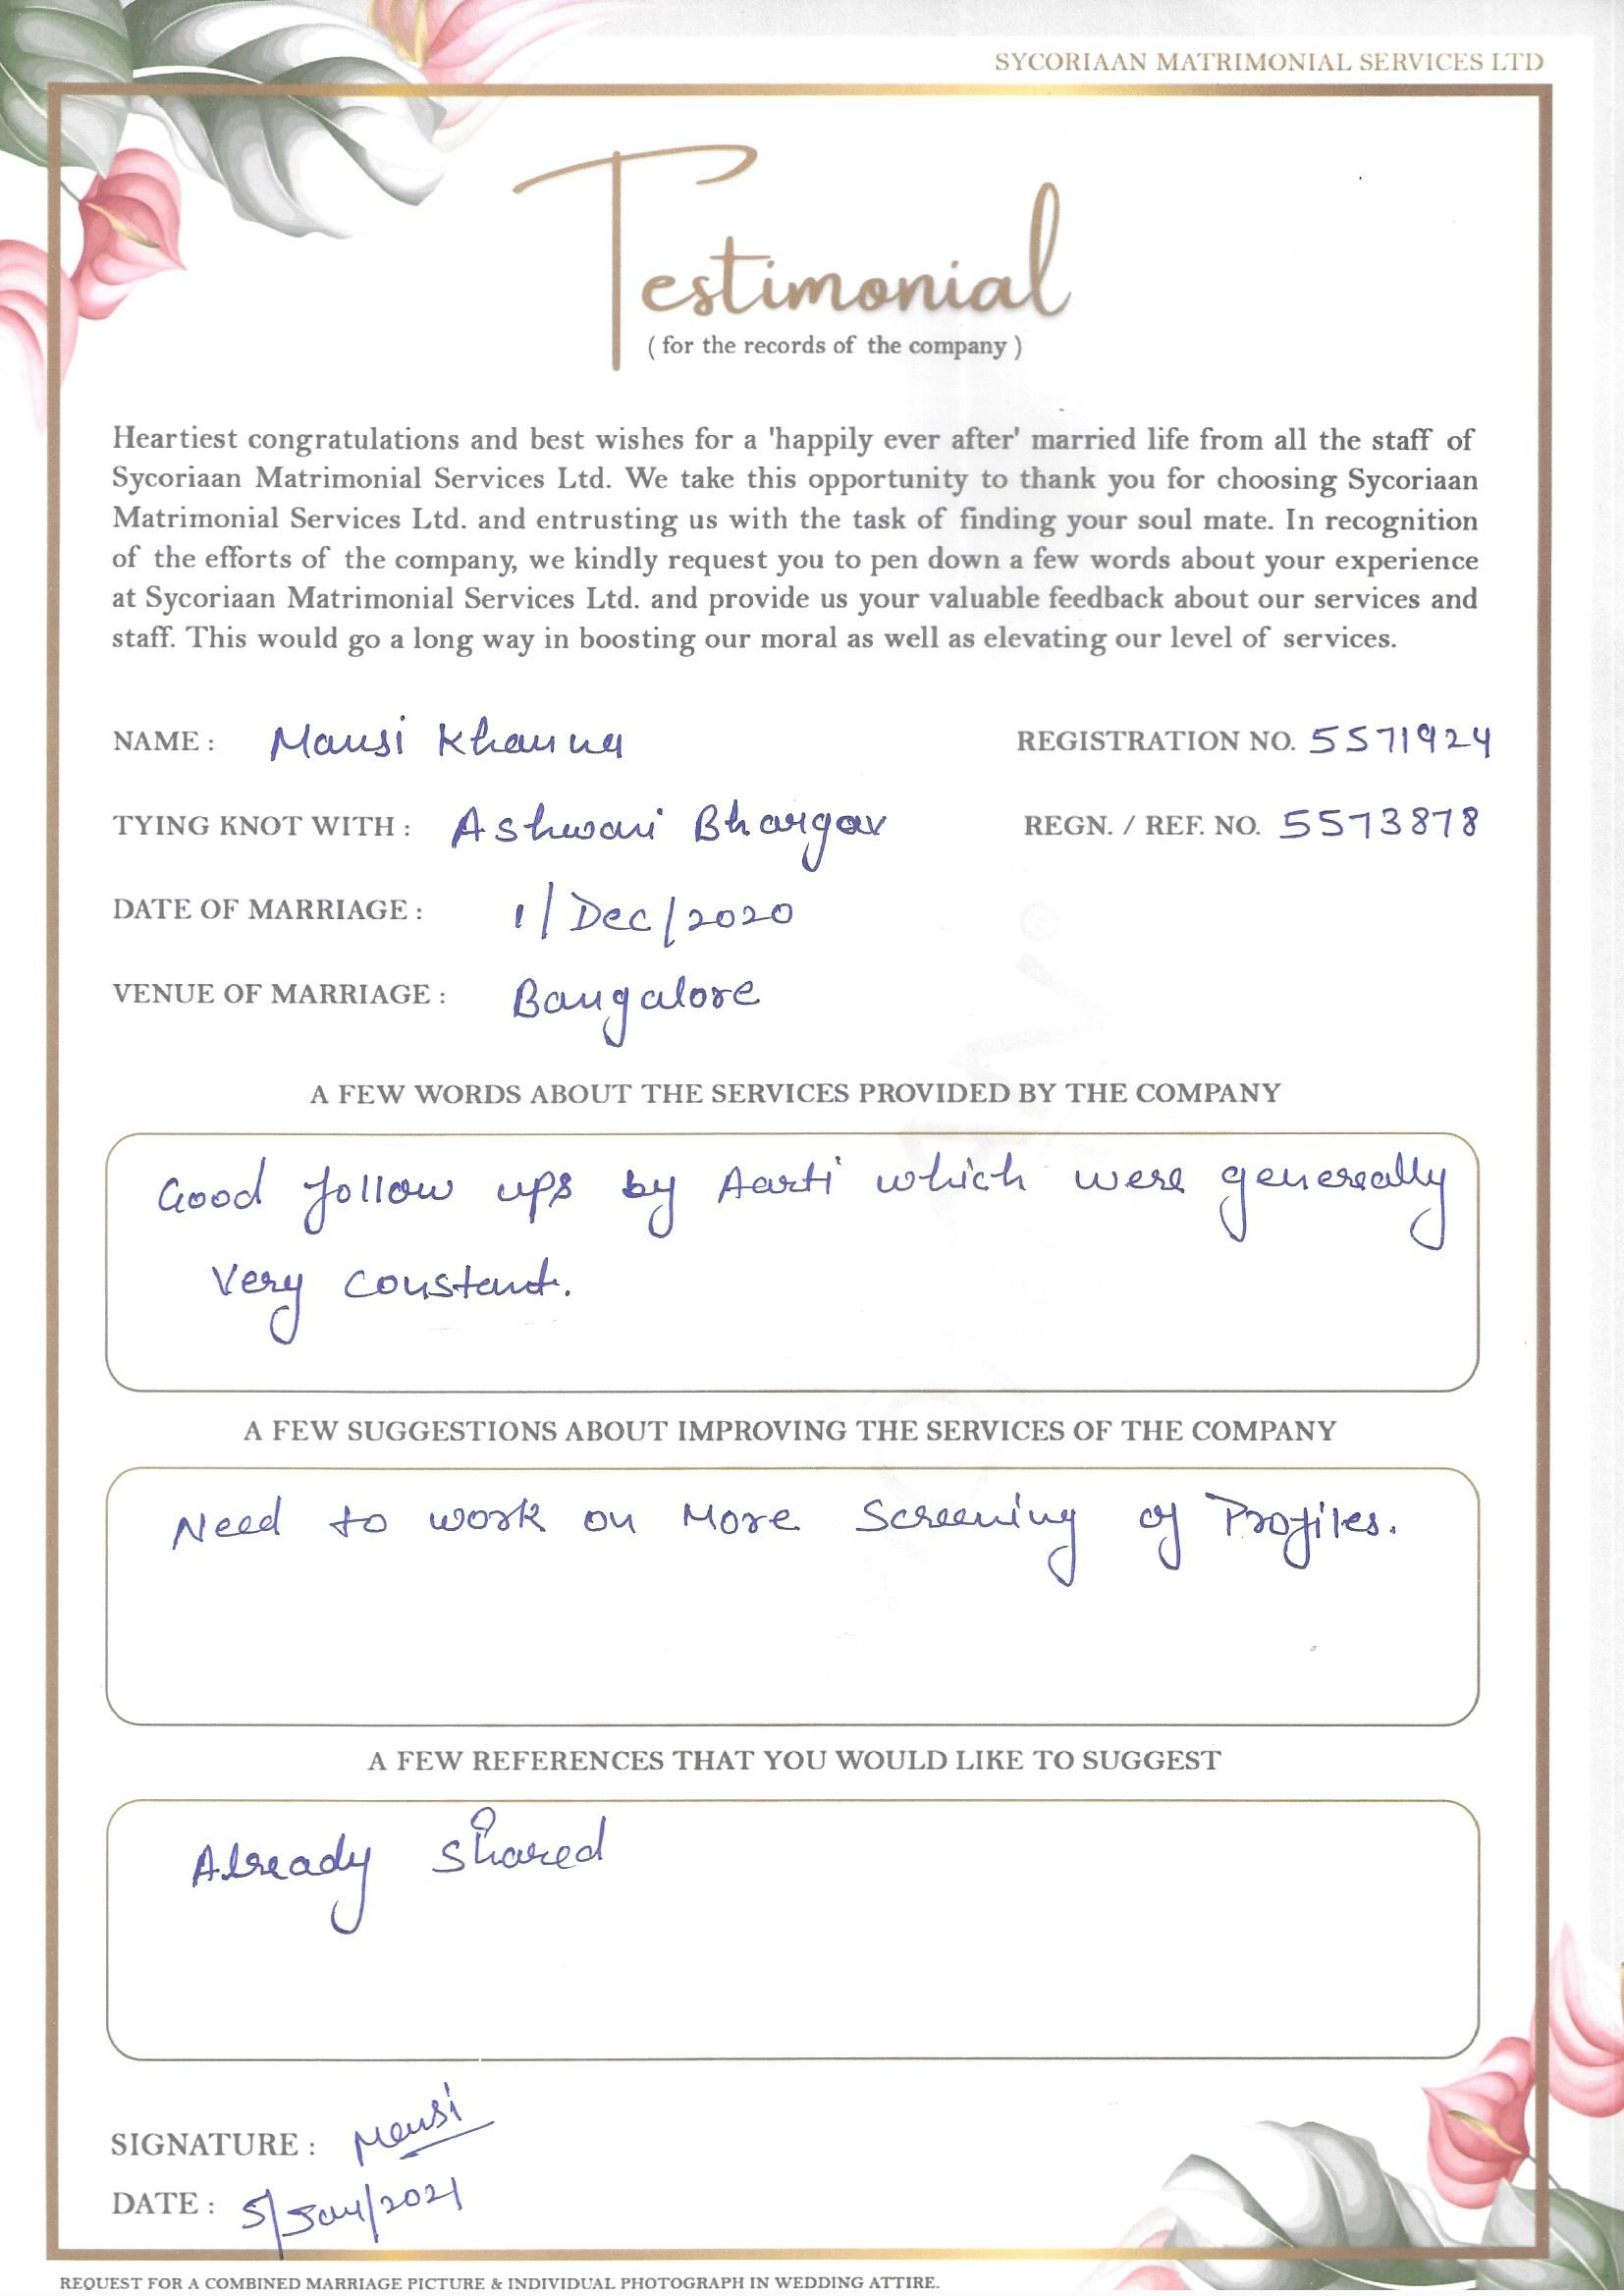 SYCORIAAN MATRIMONIAL SERVICES LTD
Testimonial
( for the records of the company )
Heartiest congratulations and best wishes for a 'happily ever after' married life from all the staff of
Sycoriaan Matrimonial Services Ltd. We take this opportunity to thank you for choosing Sycoriaan
Matrimonial Services Ltd. and entrusting us with the task of finding your soul mate. In recognition
of the efforts of the company, we kindly request you to pen down a few words about your experience
at Sycoriaan Matrimonial Services Ltd. and provide us your valuable feedback about our services and
staff. This would go a long way in boosting our moral as well as elevating our level of services.
NAME : Mansi Khanna REGISTRATION NO. 5571924
TYING KNOT WITH : Ashwani Bhargav REGN. / REF. NO. 5573878
DATE OF MARRIAGE : 1/Dec/2020
VENUE OF MARRIAGE : Bangalore
A FEW WORDS ABOUT THE SERVICES PROVIDED BY THE COMPANY
Good follow ups by Aarti which were genereally
Very constant.
A FEW SUGGESTIONS ABOUT IMPROVING THE SERVICES OF THE COMPANY
Need to work on More Screening of Profiles.
A FEW REFERENCES THAT YOU WOULD LIKE TO SUGGEST
Already shared
SIGNATURE : Mansi
DATE : 5/Jan/2021
REQUEST FOR A COMBINED MARRIAGE PICTURE & INDIVIDUAL PHOTOGRAPH IN WEDDING ATTIRE.